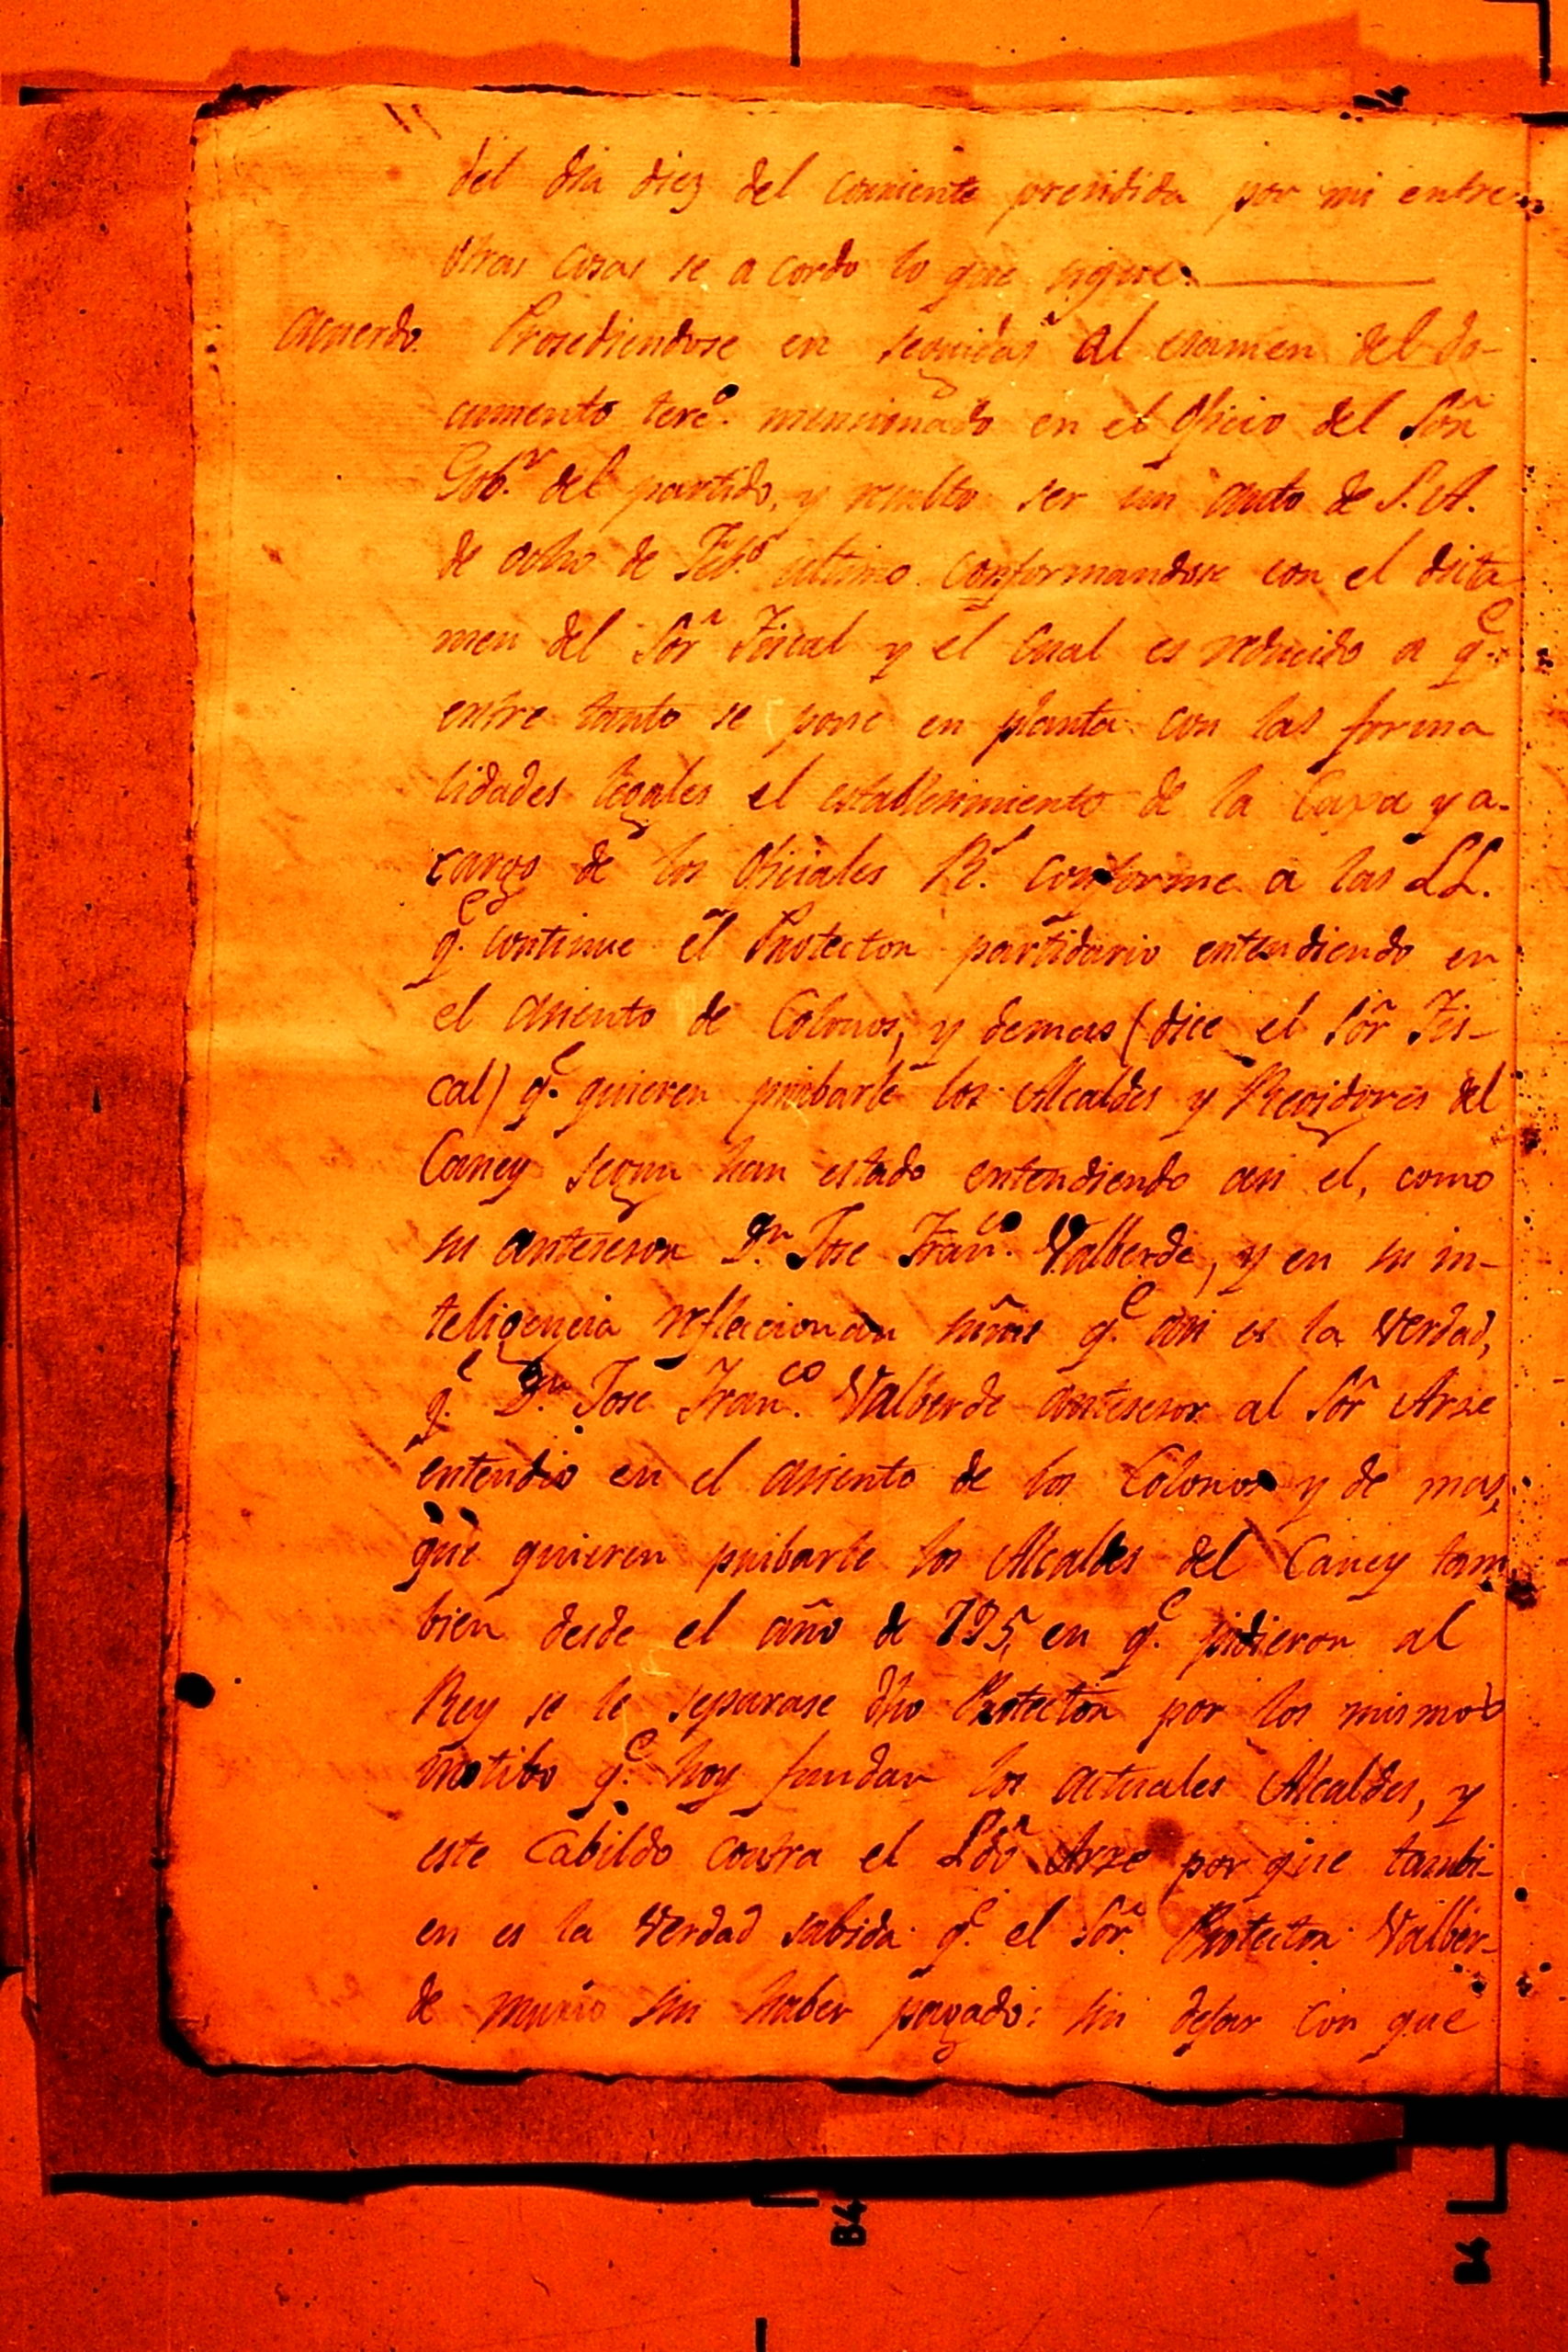 del dia diez del corriente precidida por mi entre
otras cosas se a cordo lo que sigue.
Acuerdo. Prosediendose en seguida al examen del do-
cumento terc.º mencionado en el oficio del Sõr
Gob.r del partido, y resulto ser un auto de S. A.
de ocho de Feb.º ultimo conformandose con el dicta
men del Sor Fiscal y el cual es reducido a q.e
entre tanto se pone en planta con las forma
lidades legales el establesimiento de la Caxa y a-
cargo de los Oficiales R.s conforme a las LL.
q.e continue el Protector partidario entendiendo en
el asiento de Colonos, y demas (dice el Sõr Fis-
cal) q.e quieren pribarle los Alcaldes y Regidores del
Caney segun han estado entendiendo asi el, como
su antesesor D.n Jose Fran.co Valberde, y en su in-
teligencia reflecionan sus mrs q.e asi es la verdad,
q.e D.n Jose Fran.co Valberde antesesor al Sõr Arze
entendio en el asiento de los Colonos y de mas,
que quieren pribarle los Alcaldes del Caney tam
bien desde el año de 795, en q.e pidieron al
Rey se le separase dho Protector por los mismos
motibo q.e hoy fundan los actuales Alcaldes, y
este Cabildo contra el Ldõ Arze por que tambi-
en es la verdad sabida q.e el Sor Protector Valber-
de murio sin haber pagado: sin dejar con que